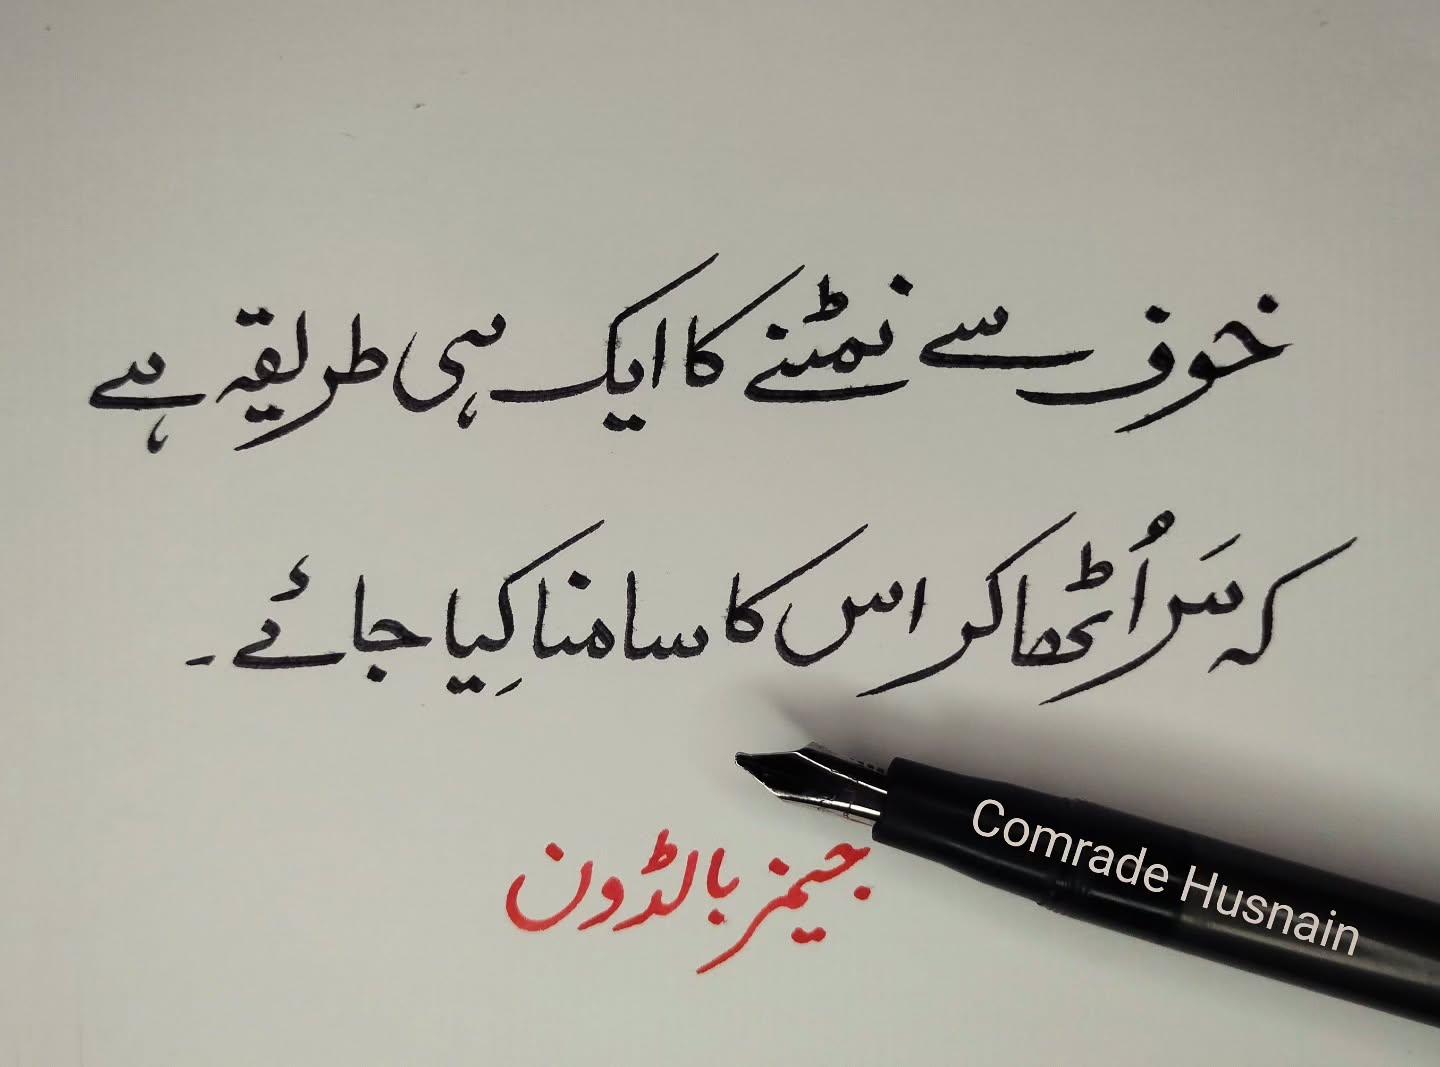 خوف سے نمٹنے کا ایک ہی طریقہ ہے
کہ سَر اُٹھا کر اس کا سامنا کِیا جائے۔
جیمز بالڈون
Comrade Husnain